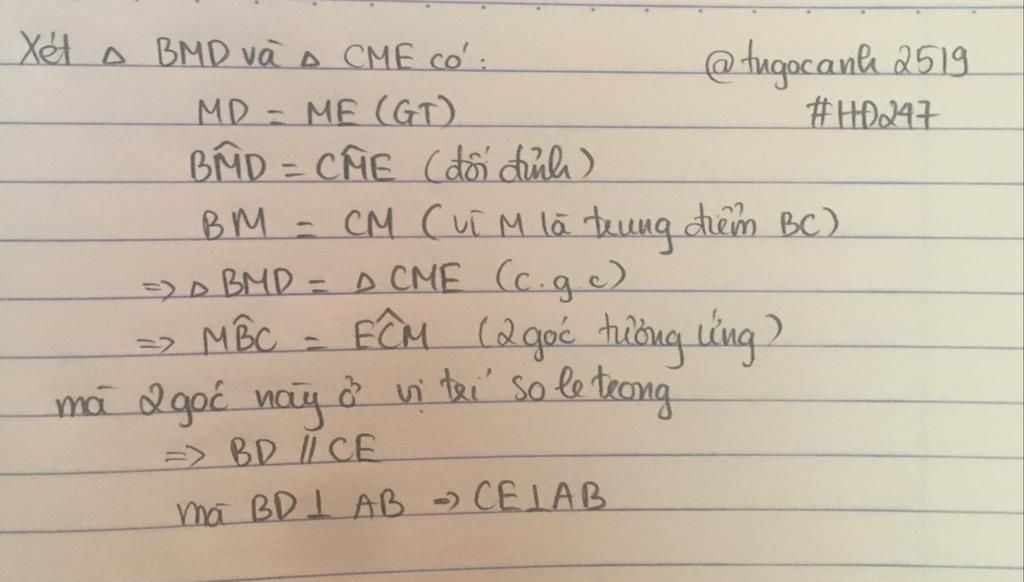 Xét △ BMD và △ CME có:
@tngocanh2519
MD = ME (GT)
#HĐ247
BM̂D = CM̂E (đối đỉnh)
BM = CM (vì M là trung điểm BC)
=> △ BMD = △ CME (c.g.c)
=> MB̂C = EĈM (2 góc tương ứng)
mà 2 góc này ở vị trí so le trong
=> BD // CE
mà BD ⊥ AB => CE ⊥ AB